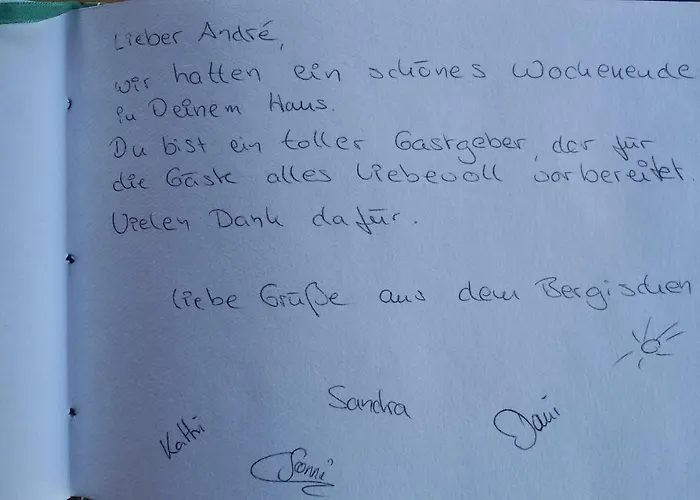 Lieber André,
wir hatten ein schönes Wochenende
in Deinem Haus.
Du bist ein toller Gastgeber, der für
die Gäste alles liebevoll vorbereitet.
Vielen Dank dafür.
Liebe Grüße aus dem Bergischen
Sandra
Kathi
Dani